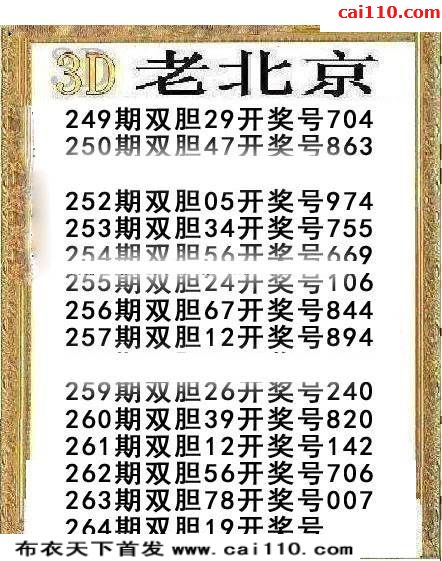 cai110.com
3D 老北京
249期双胆29开奖号704
250期双胆47开奖号863
252期双胆05开奖号974
253期双胆34开奖号755
254期双胆56开奖号669
255期双胆24开奖号106
256期双胆67开奖号844
257期双胆12开奖号894
259期双胆26开奖号240
260期双胆39开奖号820
261期双胆12开奖号142
262期双胆56开奖号706
263期双胆78开奖号007
264期双胆19开奖号
布衣天下首发 www.cai110.com